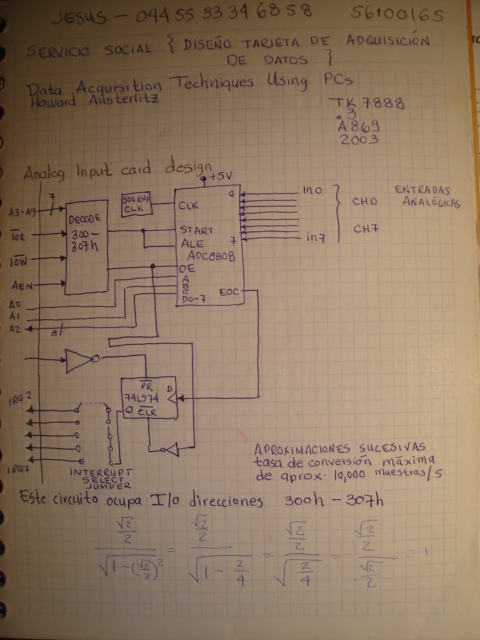 JESUS - 044 55 33 34 68 58 56100165
SERVICIO SOCIAL { DISEÑO TARJETA DE ADQUISICIÓN
DE DATOS }
Data Acqursition Techniques Using PCs
Howard Austerlitz
TK 7888
.3
A869
2003
Analog Input card design
+5V
7
A3-A9
IOR
IOW
AEN
A0
A1
A2
8
DECODE
300-
307h
CLK
CLK
START
ALE
ADC0808
OE
A
B
C
D0-7
EOC
0
7
in0
in7
CH0
CH7
ENTRADAS
ANALÓGICAS
PR
D
74LS74
Q
CLR
IRQ2
IRQ7
INTERRUPT
SELECT
JUMPER
APROXIMACIONES SUCESIVAS
tasa de conversión máxima
de aprox. 10,000 muestras/s
Este circuito ocupa I/o direcciones 300h - 307h
√2/2 / √(1-(√2/2)²) = √2/2 / √(1-2/4) = √2/2 / √(2/4) = √2/2 / √2/2 = 1